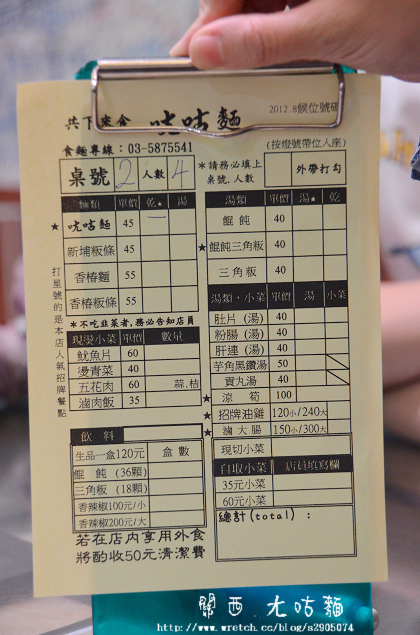 共下來食 㕫咕麵 2012.8候位號碼
食麵專線：03-5875541 (按燈號帶位入座)
桌號 2 人數 4
*請務必填上桌號.人數 外帶打勾
麵類 單價 乾★ 湯
★ 㕫咕麵 45 一
新埔粄條 45
香椿麵 55
香椿粄條 55
*不吃韭菜者,務必告知店員
現燙小菜 單價 數量
魷魚片 60
燙青菜 40
五花肉 60 蒜.桔
滷肉飯 35
打星號的是本店人氣招牌餐點
湯類 單價 湯★ 乾
餛飩 40
★ 餛飩三角粄 40
三角粄 40
湯類、小菜 單價 湯 小菜
肚片 (湯) 40
粉腸 (湯) 40
肝連 (湯) 40
芋角黑鑽湯 50
貢丸湯 40
★ 涼筍 100
★ 招牌油雞 120小/240大
★ 滷大腸 150小/300大
飲料
生品一盒120元 盒數
餛飩 (36顆)
三角粄 (18顆)
香辣椒100元/小
香辣椒200元/大
現切小菜
自取小菜 店員填寫欄
35元小菜
60元小菜
總計(total)：
若在店內享用外食
將酌收50元清潔費
關西 尢咕麵
http://www.wretch.cc/blog/a2905074